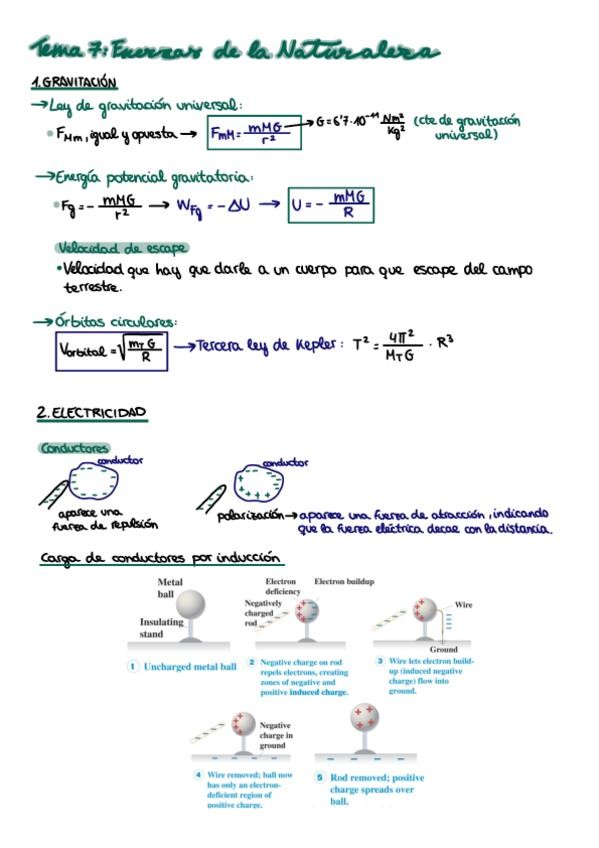 Tema 7: Fuerzas de la Naturaleza
1. GRAVITACIÓN
→ Ley de gravitación universal:
• F_Mm, igual y opuesta → F_mM = mMG / r² → G = 6'7·10⁻¹¹ Nm²/Kg² (cte de gravitación universal)
→ Energía potencial gravitatoria:
• Fg = - mMG / r² → W_Fg = -ΔU → U = - mMG / R
Velocidad de escape
• Velocidad que hay que darle a un cuerpo para que escape del campo
terrestre.
→ Órbitas circulares:
Vorbital = √(m_T G / R) → Tercera ley de Kepler: T² = 4π² / M_T G · R³
2. ELECTRICIDAD
Conductores
conductor
aparece una
fuerza de repulsión
conductor
polarización → aparece una fuerza de atracción, indicando
que la fuerza eléctrica decae con la distancia.
Carga de conductores por inducción
Metal
ball
Insulating
stand
1 Uncharged metal ball
Electron
deficiency
Electron buildup
Negatively
charged
rod
2 Negative charge on rod
repels electrons, creating
zones of negative and
positive induced charge.
Wire
Ground
3 Wire lets electron build-
up (induced negative
charge) flow into
ground.
Negative
charge in
ground
4 Wire removed; ball now
has only an electron-
deficient region of
positive charge.
5 Rod removed; positive
charge spreads over
ball.